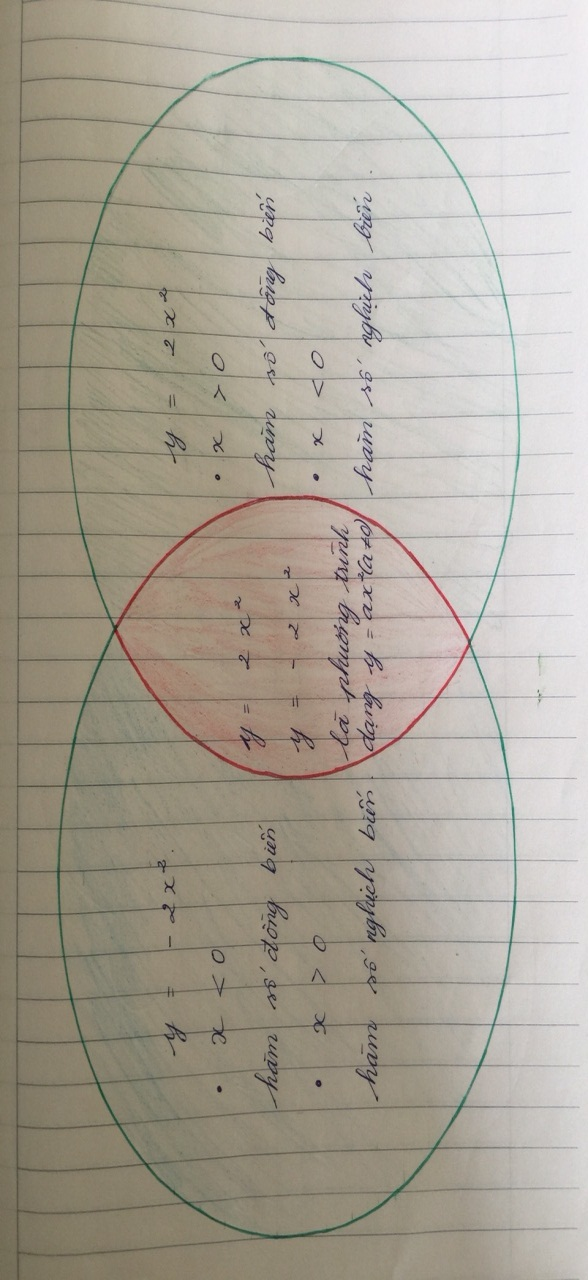 y = - 2x².
• x < 0
hàm số đồng biến
• x > 0
hàm số nghịch biến.
y = 2x²
y = - 2x²
là phương trình
dạng y = ax²(a≠0)
y = 2x²
• x > 0
hàm số đồng biến
• x < 0
hàm số nghịch biến.